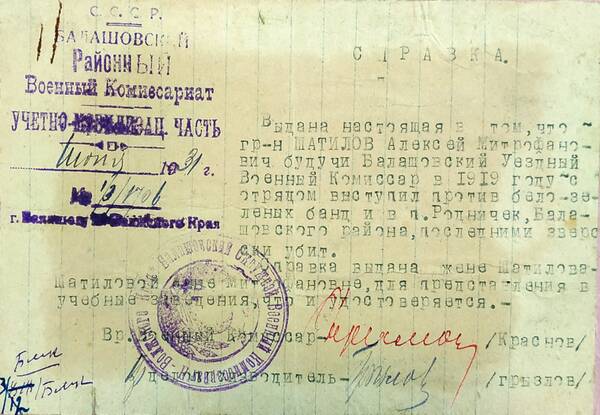 С. С. С. Р.
БАЛАШОВСКИЙ
Районный
Военный Комиссариат
УЧЕТНО- ЗАЦ. ЧАСТЬ
1931 г.
№ 13/1706
г. Края
СПРАВКА.
Выдана настоящая в том, что -
гр-н ШАТИЛОВ Алексей Митрофано-
вич будучи Балашовский Уездный
Военный Комиссар в 1919 году с
отрядом выступил против бело-зе-
леных банд и в п. Родничек, Бала-
шовского района, последними зверс
ски убит.
Справка выдана жене Шатилова-
Шатиловой Анне Митрофановне, для представления в
учебные заведения, что и удостоверяется.-
Вр. Военный Комиссар- /Краснов/
Делопроизводитель- /Грызлов/